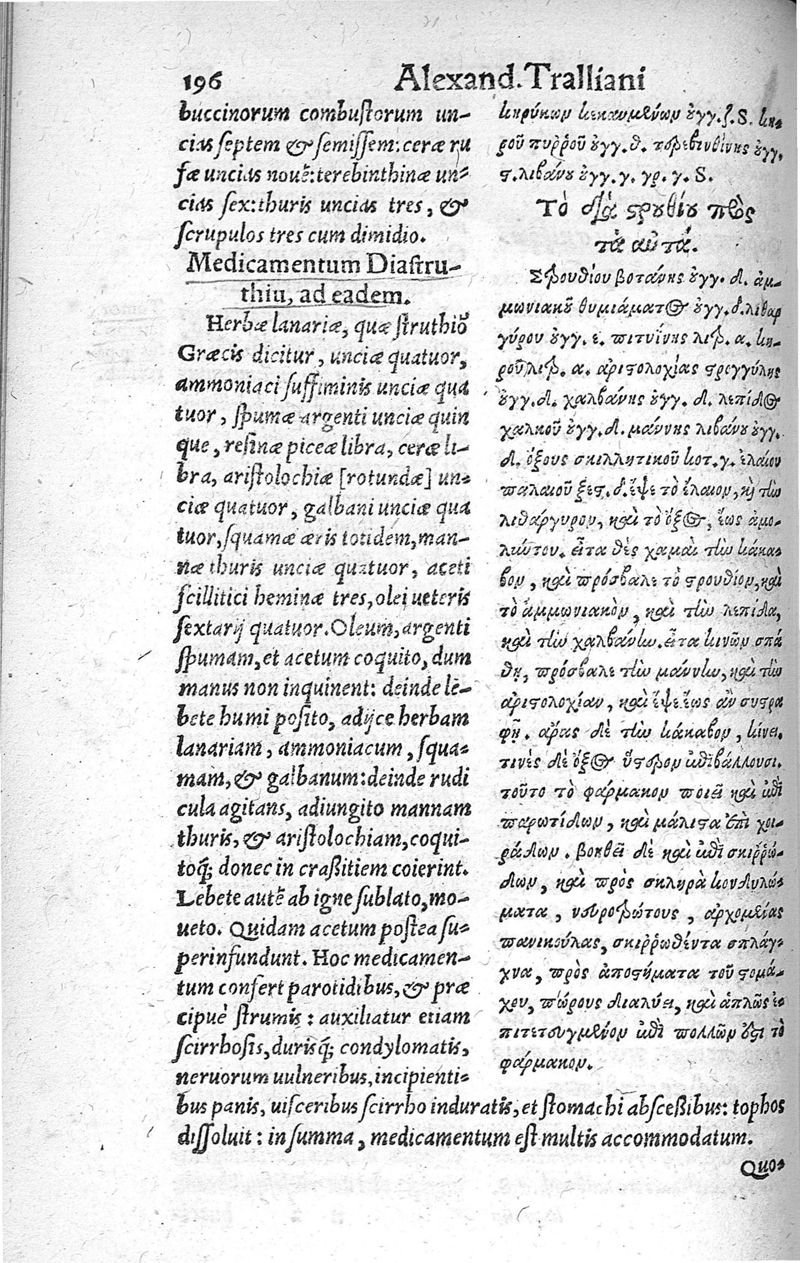 196
Alexand. Tralliani
buccinorum combustorum un-
cias septem & semissem: ceræ ru
fæ uncias nouẽ: terebinthinæ un-
cias sex: thuris uncias tres, &
scrupulos tres cum dimidio.
Medicamentum Diastru-
thiu, ad eadem.
Herbæ lanariæ, quæ struthiõ
Græcis dicitur, unciæ quatuor,
ammoniaci suffiminis unciæ qua
tuor, spumæ argenti unciæ quin
que, resinæ piceæ libra, ceræ li-
bra, aristolochiæ [rotundæ] un-
ciæ quatuor, galbani unciæ qua
tuor, squamæ æris totidem, man-
næ thuris unciæ quatuor, aceti
scillitici heminæ tres, olei ueteris
sextarij quatuor. Oleum, argenti
spumam, et acetum coquito, dum
manus non inquinent: deinde le-
bete humi posito, adijce herbam
lanariam, ammoniacum, squa-
mam, & galbanum: deinde rudi
cula agitans, adiungito mannam
thuris, & aristolochiam, coqui-
toq́; donec in crassitiem coierint.
Lebete autẽ ab igne sublato, mo-
ueto. Quidam acetum postea su-
perinfundunt. Hoc medicamen-
tum confert parotidibus, & præ
cipuè strumis: auxiliatur etiam
scirrhosis, durisq́; condylomatis,
neruorum uulneribus, incipienti-
bus panis, uisceribus scirrho induratis, et stomachi abscessibus: tophos
dissoluit: in summa, medicamentum est multis accommodatum.
κηρύκων κεκαυμένων ουγγ. ζ. S. κη-
ροῦ πυῤῥοῦ ουγγ. θ. τερεβινθίνης ουγγ.
ϛ. λιβάνου ουγγ. γ. γρ. γ. S.
Τὸ διὰ στρουθίου πρὸς
τὰ αὐτά.
Στρουθίου βοτάνης ουγγ. δ. ἀμ-
μωνιακοῦ θυμιάματος ουγγ. δ. λιθαρ
γύρου ουγγ. ε. πιτυΐνης λιβ. α. κη-
ροῦ λιβ. α. ἀριστολοχίας στρογγύλης
ουγγ. δ. χαλβάνης ουγγ. δ. λεπίδος
χαλκοῦ ουγγ. δ. μάννης λιβάνου ουγγ.
δ. ὄξους σκιλλητικοῦ κοτ. γ. ἐλαίου
παλαιοῦ ξες. δ. ἕψε τὸ ἔλαιον, καὶ τὴν
λιθάργυρον, καὶ τὸ ὄξος, ἕως ἀμο-
λύντου. εἶτα θὲς χαμαὶ τὴν κάκα-
βον, καὶ πρόσβαλε τὸ στρουθίον, καὶ
τὸ ἀμμωνιακὸν, καὶ τὴν λεπίδα,
καὶ τὴν χαλβάνην. εἶτα κινῶν σπά
θῃ, πρόσβαλε τὴν μάννην, καὶ τὴν
ἀριστολοχίαν, καὶ ἕψε ἕως ἂν συστρα
φῇ. ἄρας δὲ τὴν κάκαβον, κίνει.
τινὲς δὲ ὄξος ὕστερον ἐπιβάλλουσι.
τοῦτο τὸ φάρμακον ποιεῖ καὶ ἐπὶ
παρωτίδων, καὶ μάλιστα ἐπὶ χοι-
ράδων. βοηθεῖ δὲ καὶ ἐπὶ σκιῤῥω-
δῶν, καὶ πρὸς σκληρὰ κονδυλώ-
ματα, νευροτρώτους, ἀρχομένας
πανικούλας, σκιῤῥωθέντα σπλάγ-
χνα, πρὸς ἀποστήματα τοῦ στομά-
χου, πώρους διαλύει, καὶ ἁπλῶς ἐ-
πιτετευγμένον ἐπὶ πολλῶν ἐστὶ τὸ
φάρμακον.
Quo-